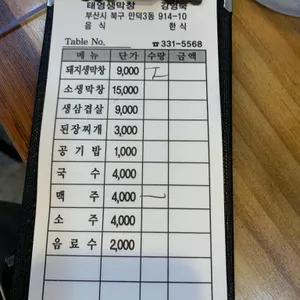 태영생막창 강영숙
부산시 북구 만덕3동 914-10
음 식 한 식
Table No. ☎331-5568
메 뉴 단 가 수량 금 액
돼지생막창 9,000
소생막창 15,000
생삼겹살 9,000
된장찌개 3,000
공 기 밥 1,000
국 수 4,000
맥 주 4,000
소 주 4,000
음 료 수 2,000